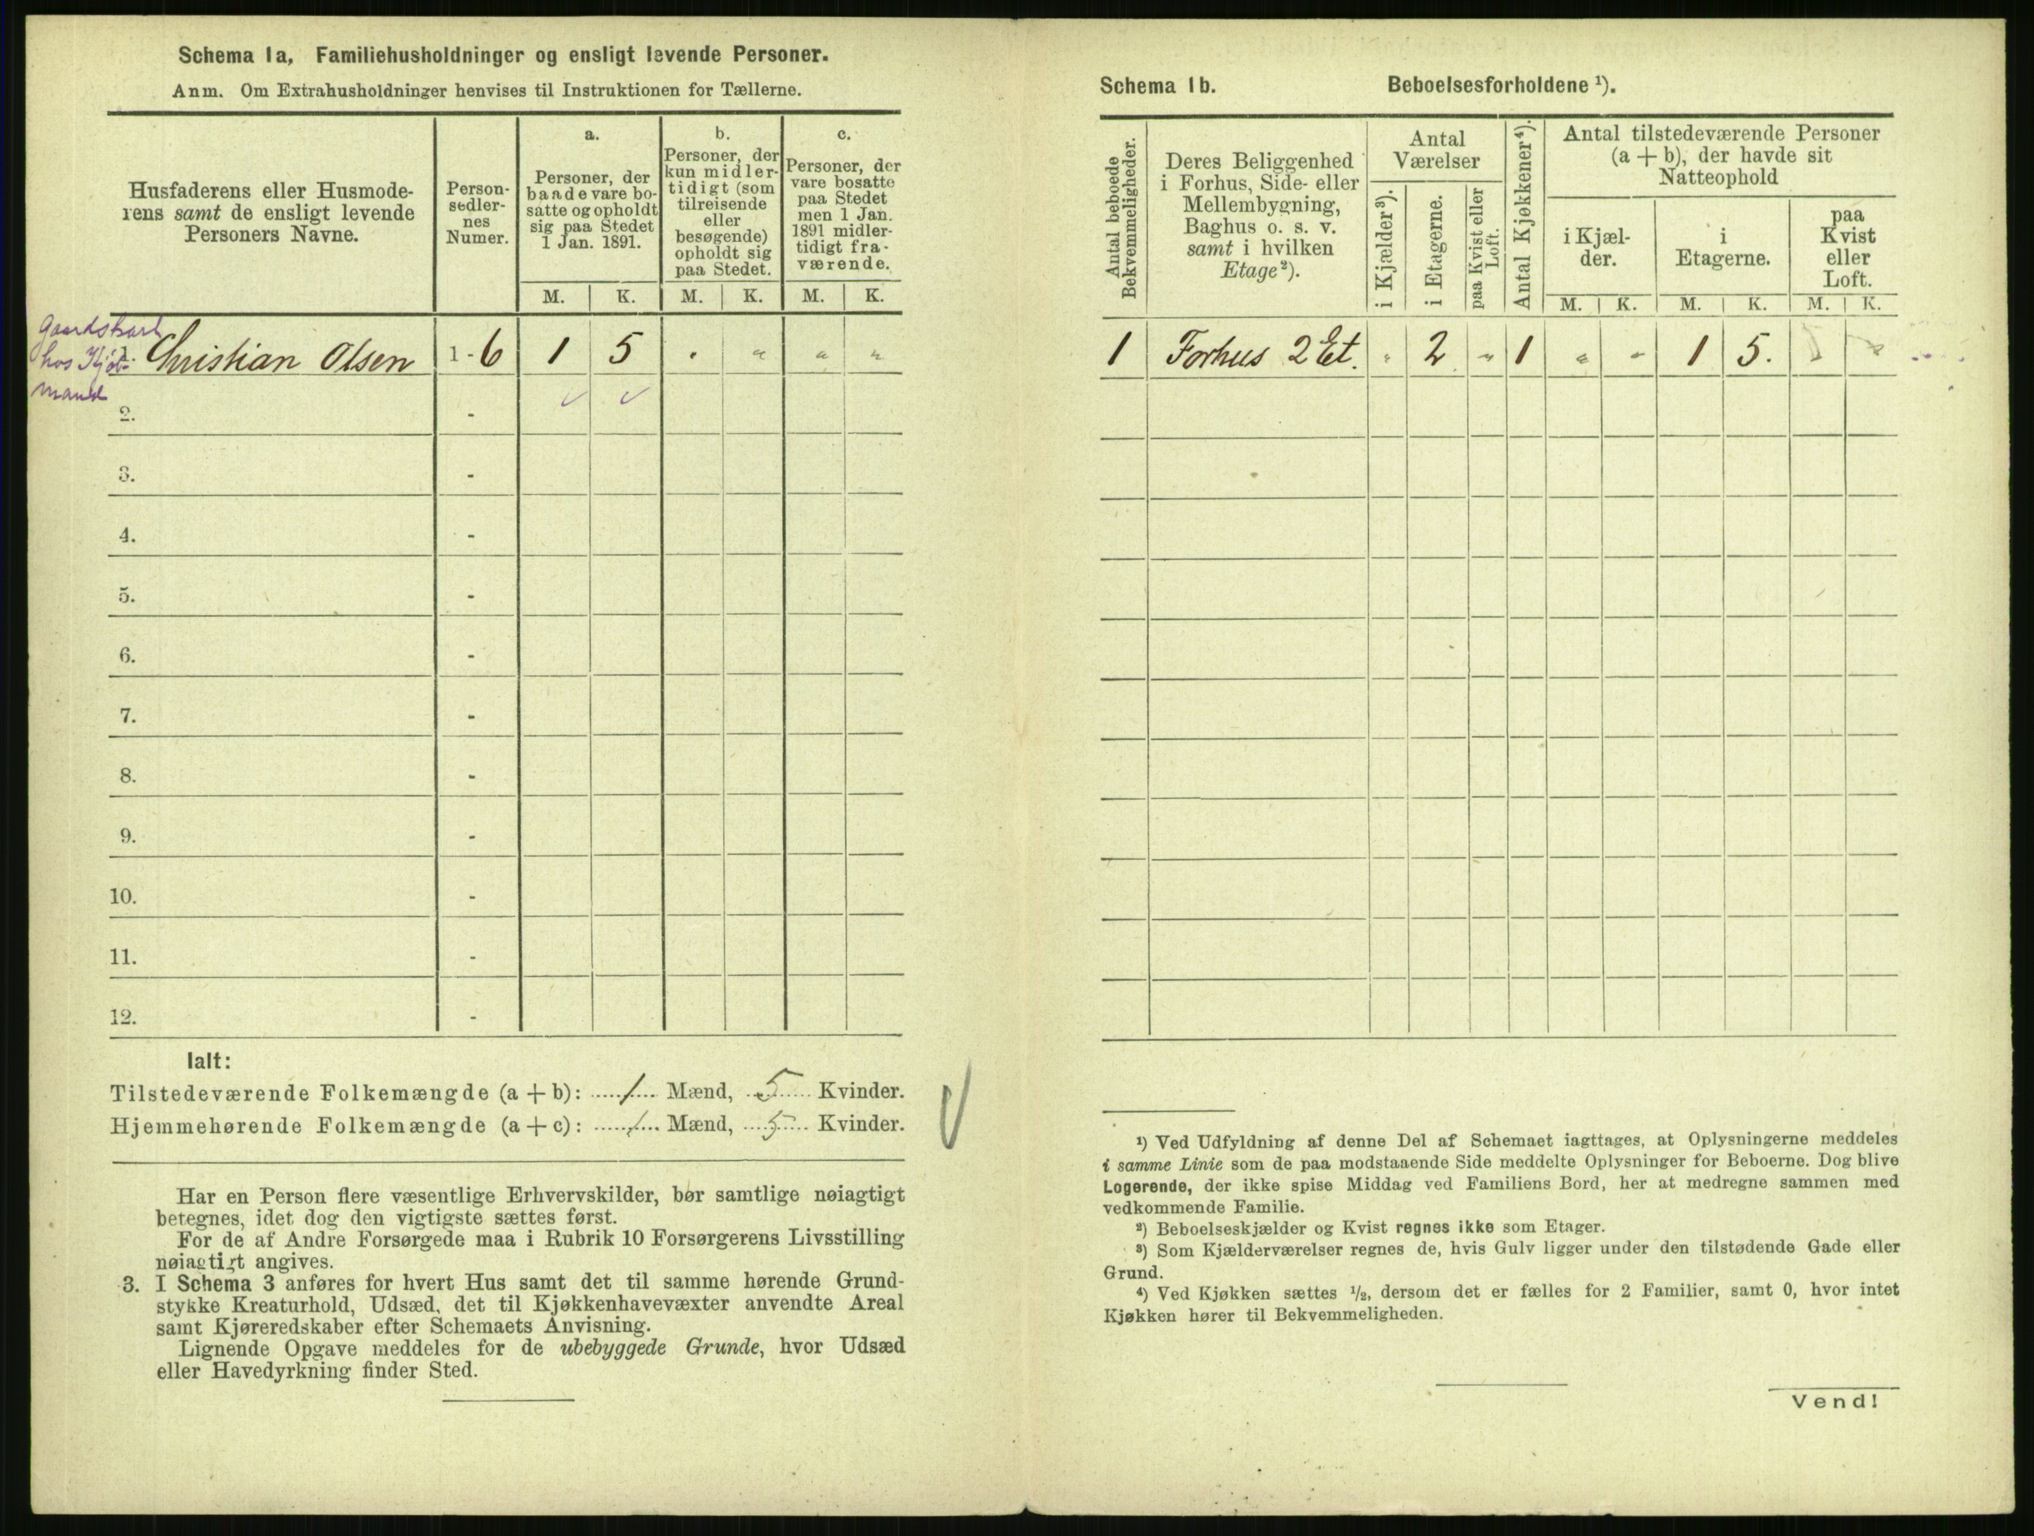 Schema 1a, Familiehusholdninger og ensligt levende Personer.
Anm. Om Extrahusholdninger henvises til Instruktionen for Tællerne.
Husfaderens eller Husmode-
rens samt de ensligt levende
Personers Navne.
Person-
sedler-
nes
Numer.
a.
Personer, der
baade vare bo-
satte og opholdt
sig paa Stedet
1 Jan. 1891.
b.
Personer, der
kun midler-
tidigt (som
tilreisende
eller
besøgende)
opholdt sig
paa Stedet.
c.
Personer, der
vare bosatte
paa Stedet
men 1 Jan.
1891 midler-
tidigt fra-
værende.
M. K. M. K. M. K.
Gaardskarl
hos Kjøb-
mand
1. Christian Olsen 1 - 6 1 5 . " " "
2. -
3. -
4. -
5. -
6. -
7. -
8. -
9. -
10. -
11. -
12. -
Ialt:
Tilstedeværende Folkemængde (a + b): 1 Mænd, 5 Kvinder.
Hjemmehørende Folkemængde (a + c): 1 Mænd, 5 Kvinder.
Har en Person flere væsentlige Erhvervskilder, bør samtlige nøiagtigt
betegnes, idet dog den vigtigste sættes først.
For de af Andre Forsørgede maa i Rubrik 10 Forsørgerens Livsstilling
nøiagtigt angives.
3. I Schema 3 anføres for hvert Hus samt det til samme hørende Grund-
stykke Kreaturhold, Udsæd, det til Kjøkkenhavevæxter anvendte Areal
samt Kjøreredskaber efter Schemaets Anvisning.
Lignende Opgave meddeles for de ubebyggede Grunde, hvor Udsæd
eller Havedyrkning finder Sted.
Schema 1b. Beboelsesforholdene ¹).
Antal beboede
Bekvemmeligheder.
Deres Beliggenhed
i Forhus, Side- eller
Mellembygning,
Baghus o. s. v.
samt i hvilken
Etage²).
Antal
Værelser
i Kjælder³).
i Etagerne.
paa Kvist eller
Loft.
Antal Kjøkkener⁴).
Antal tilstedeværende Personer
(a + b), der havde sit
Natteophold
i Kjæl-
der.
i
Etagerne.
paa
Kvist
eller
Loft.
M. K. M. K. M. K.
1 Forhus 2 Et. " 2 " 1 " " 1 5.
¹) Ved Udfyldning af denne Del af Schemaet iagttages, at Oplysningerne meddeles
i samme Linie som de paa modstaaende Side meddelte Oplysninger for Beboerne. Dog blive
Logerende, der ikke spise Middag ved Familiens Bord, her at medregne sammen med
vedkommende Familie.
²) Beboelseskjælder og Kvist regnes ikke som Etager.
³) Som Kjælderværelser regnes de, hvis Gulv ligger under den tilstødende Gade eller
Grund.
⁴) Ved Kjøkken sættes ½, dersom det er fælles for 2 Familier, samt 0, hvor intet
Kjøkken hører til Bekvemmeligheden.
Vend!